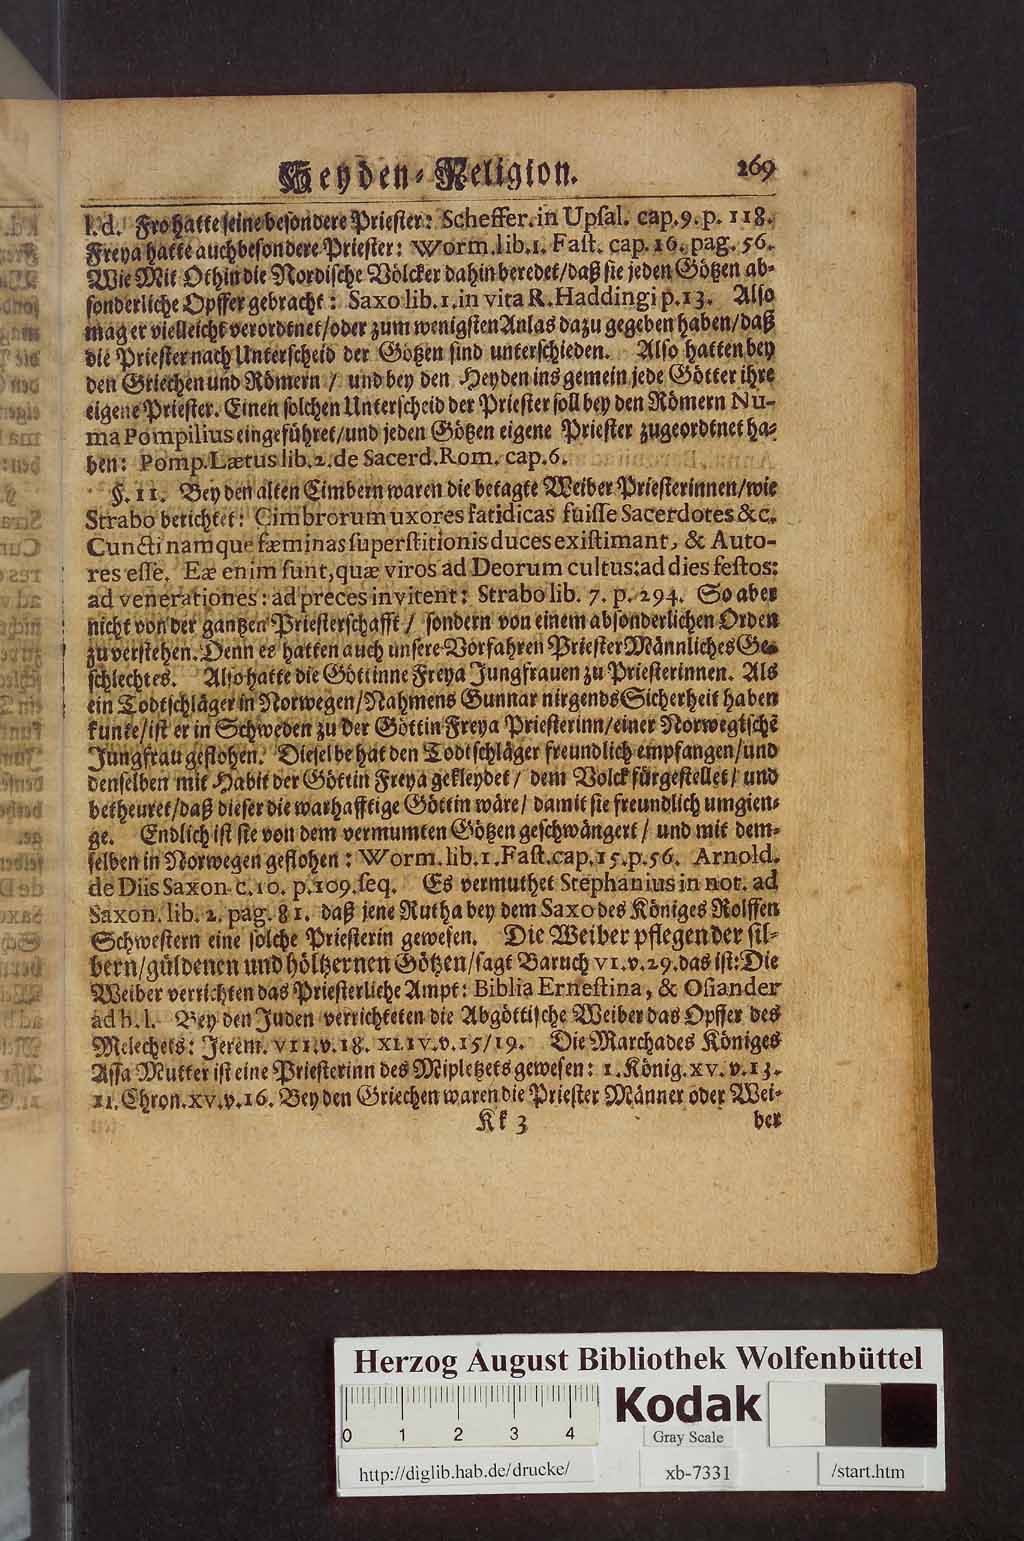 Heyden-Religion. 269
l.d. Fro hatte seine besondere Priester: Scheffer. in Upsal. cap. 9. p. 118.
Freya hatte auch besondere Priester: Worm. lib. 1. Fast. cap. 16. pag. 56.
Wie Mit Othin die Nordische Völcker dahin beredet/ daß sie jeden Götzen ab-
sonderliche Opffer gebracht: Saxo lib. 1. in vita R. Haddingi p. 13. Also
mag er vielleicht verordtnet/ oder zum wenigsten Anlas dazu gegeben haben/ daß
die Priester nach Unterscheid der Götzen sind unterschieden. Also hatten bey
den Griechen und Römern / und bey den Heyden ins gemein jede Götter ihre
eigene Priester. Einen solchen Unterscheid der Priester soll bey den Römern Nu-
ma Pompilius eingeführet/ und jeden Götzen eigene Priester zugeordtnet ha-
ben: Pomp. Lætus lib. 2. de Sacerd. Rom. cap. 6.
§. 11. Bey den alten Cimbern waren die betagte Weiber Priesterinnen/ wie
Strabo berichtet: Cimbrorum uxores fatidicas fuisse Sacerdotes &c.
Cuncti namque fæminas superstitionis duces existimant, & Auto-
res esse. Eæ enim sunt, quæ viros ad Deorum cultus: ad dies festos:
ad venerationes: ad preces invitent: Strabo lib. 7. p. 294. So aber
nicht von der gantzen Priesterschafft / sondern von einem absonderlichen Orden
zu verstehen. Denn es hatten auch unsere Vorfahren Priester Männliches Ge-
schlechtes. Also hatte die Göttinne Freya Jungfrauen zu Priesterinnen. Als
ein Todtschläger in Norwegen/ Nahmens Gunnar nirgends Sicherheit haben
kunte/ ist er in Schweden zu der Göttin Freya Priesterinn/ einer Norwegischē
Jungfrau geflohen. Dieselbe hat den Todtschläger freundlich empfangen/ und
denselben mit Habit der Göttin Freya gekleydet / dem Volck fürgestellet/ und
betheuret/ daß dieser die warhafftige Göttin wäre/ damit sie freundlich umgien-
ge. Endlich ist sie von dem vermumten Götzen geschwängert / und mit dem-
selben in Norwegen geflohen: Worm. lib. 1. Fast. cap. 15. p. 56. Arnold.
de Diis Saxon c. 10. p. 109. seq. Es vermuthet Stephanius in not. ad
Saxon. lib. 2. pag. 81. daß jene Rutha bey dem Saxo des Königes Rolffen
Schwestern eine solche Priesterin gewesen. Die Weiber pflegen der sil-
bern/ güldenen und höltzernen Götzen/ sagt Baruch VI. v. 29. das ist: Die
Weiber verrichten das Priesterliche Ampt: Biblia Ernestina, & Osiander
ad h. l. Bey den Juden verrichteten die Abgöttische Weiber das Opffer des
Melechets: Jerem. VII. v. 18. XLIV. v. 15/19. Die Marcha des Königes
Assa Mutter ist eine Priesterinn des Mipletzets gewesen: 1. König. XV. v. 13.
II. Chron. XV. v. 16. Bey den Griechen waren die Priester Männer oder Wei-
Kk 3 ber
Herzog August Bibliothek Wolfenbüttel
0 1 2 3 4
Kodak
Gray Scale
http://diglib.hab.de/drucke/
xb-7331
/start.htm